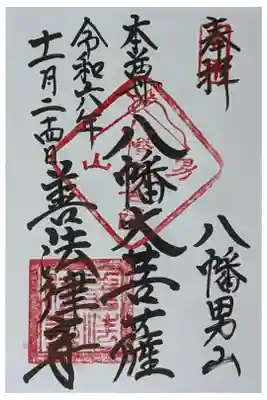 奉拝
八幡男山
本尊
八幡大菩薩
令和六年
十一月二十四日
善法律寺